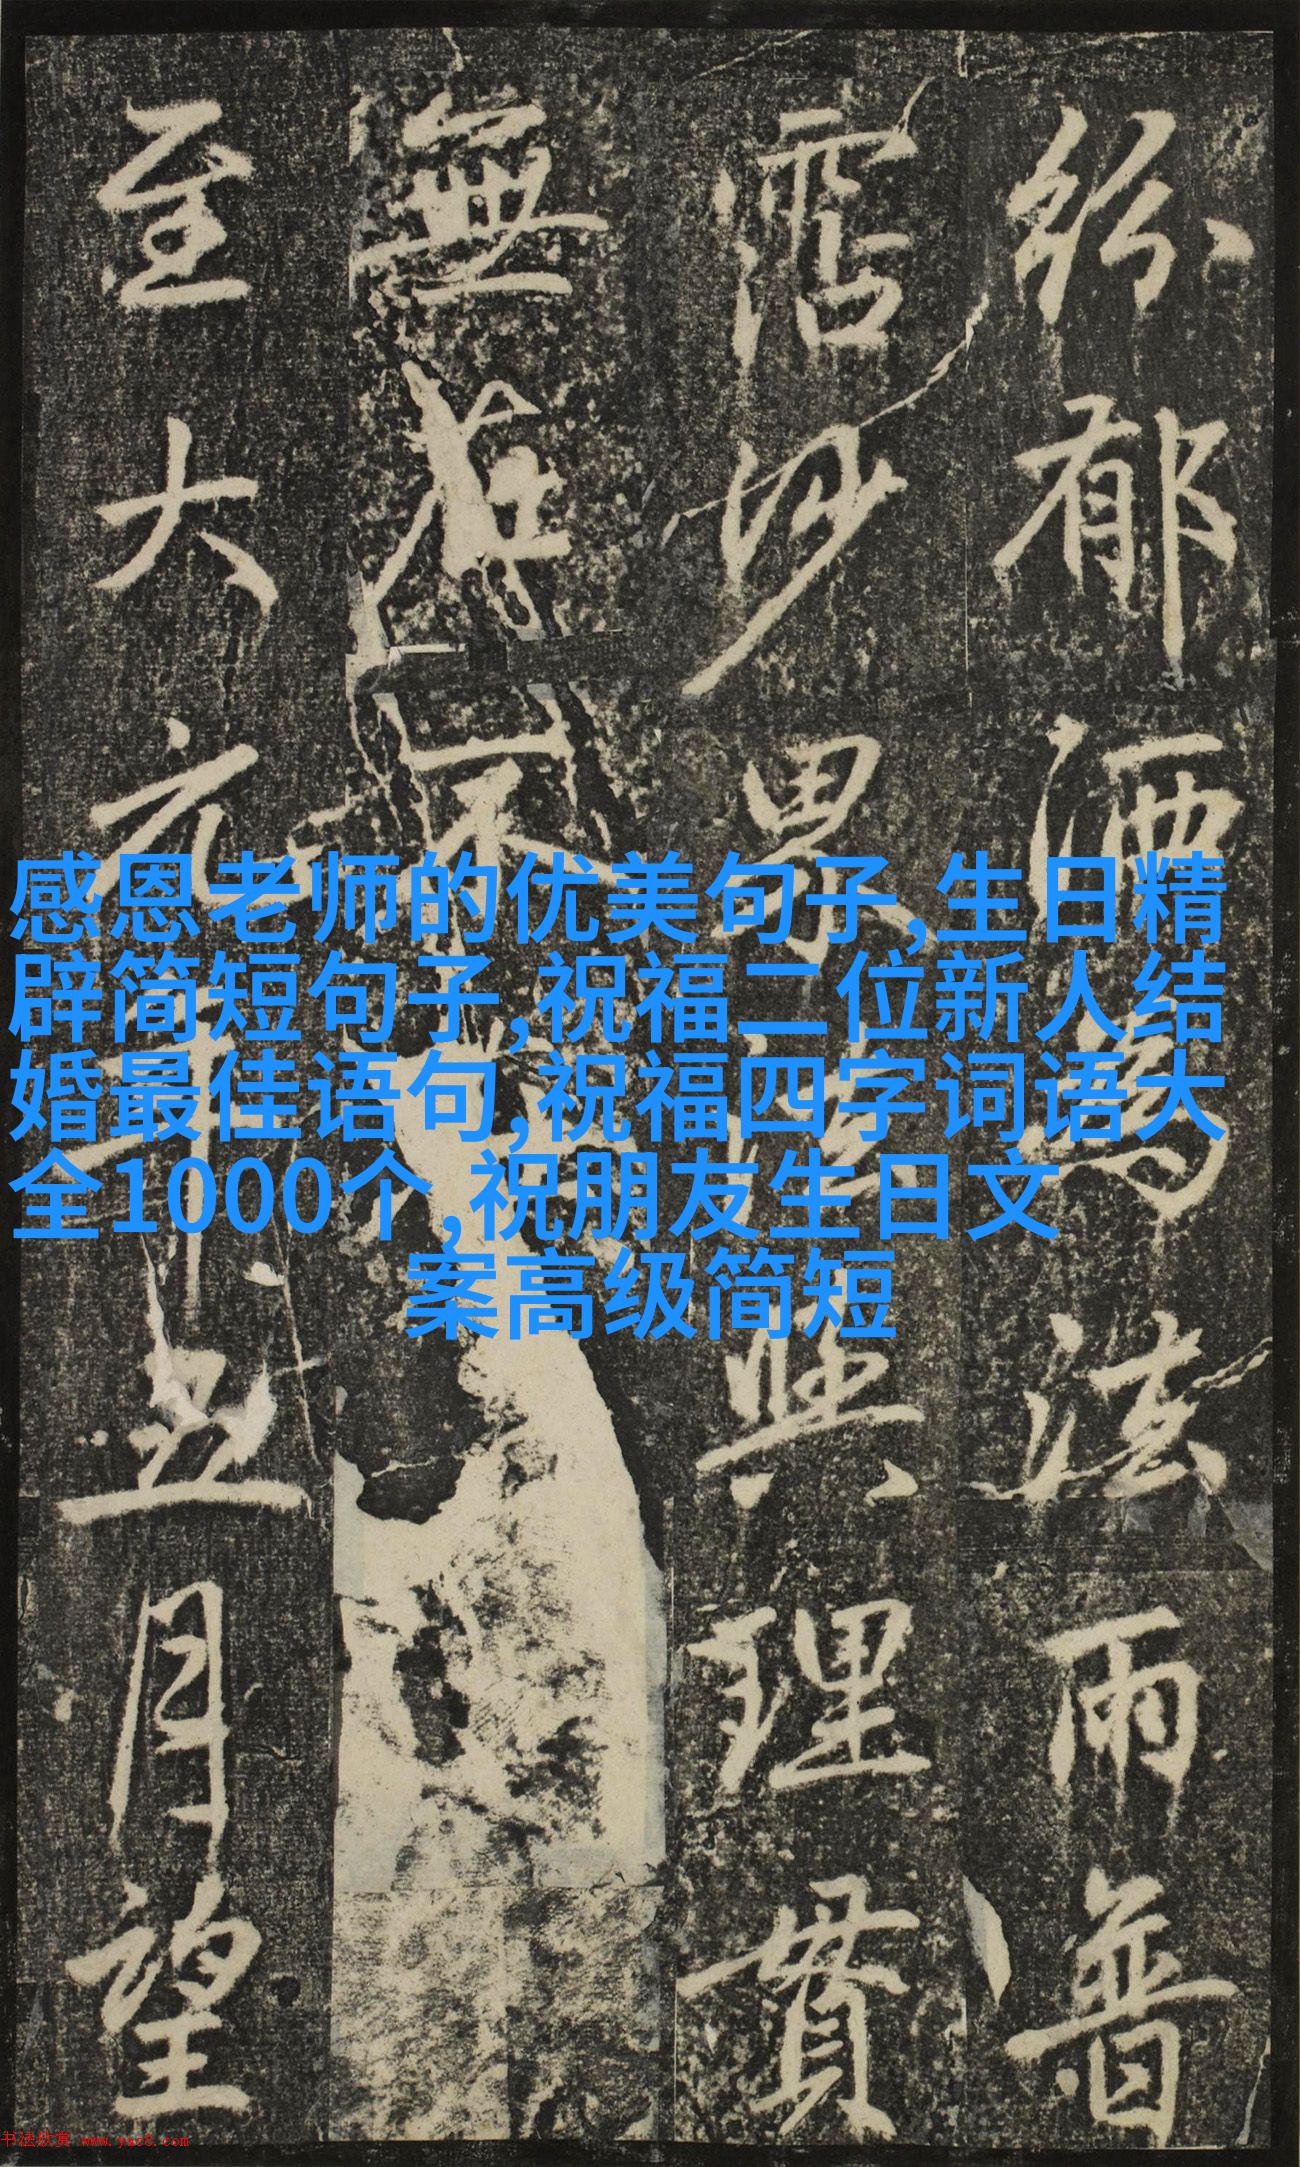 紛郁灑為法雨普
霑沙界與理貫
無在不
至大元年五月望
感恩老师的优美句子,生日精
辟简短句子,祝福二位新人结
婚最佳语句,祝福四字词语大
全1000个,祝朋友生日文
案高级简短
书法欣赏 www.yac8.com